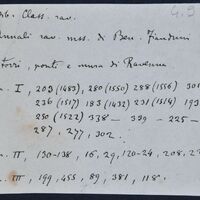 Bib. Class. rav.
Annali rav. mss. di Ben. Fiandrini
Torri, porte e mura di Ravenna
I, 203 (1483), 280 (1550) 288 (1556) 30
236 (1517) 183 (1432) 231 (1514) 193
250 (1522) 338 - 399 - 225 -
287, 277, 302.
II, 130-138, 16, 29, 120-24, 208, 2
III, 199, 455, 89, 381, 118.